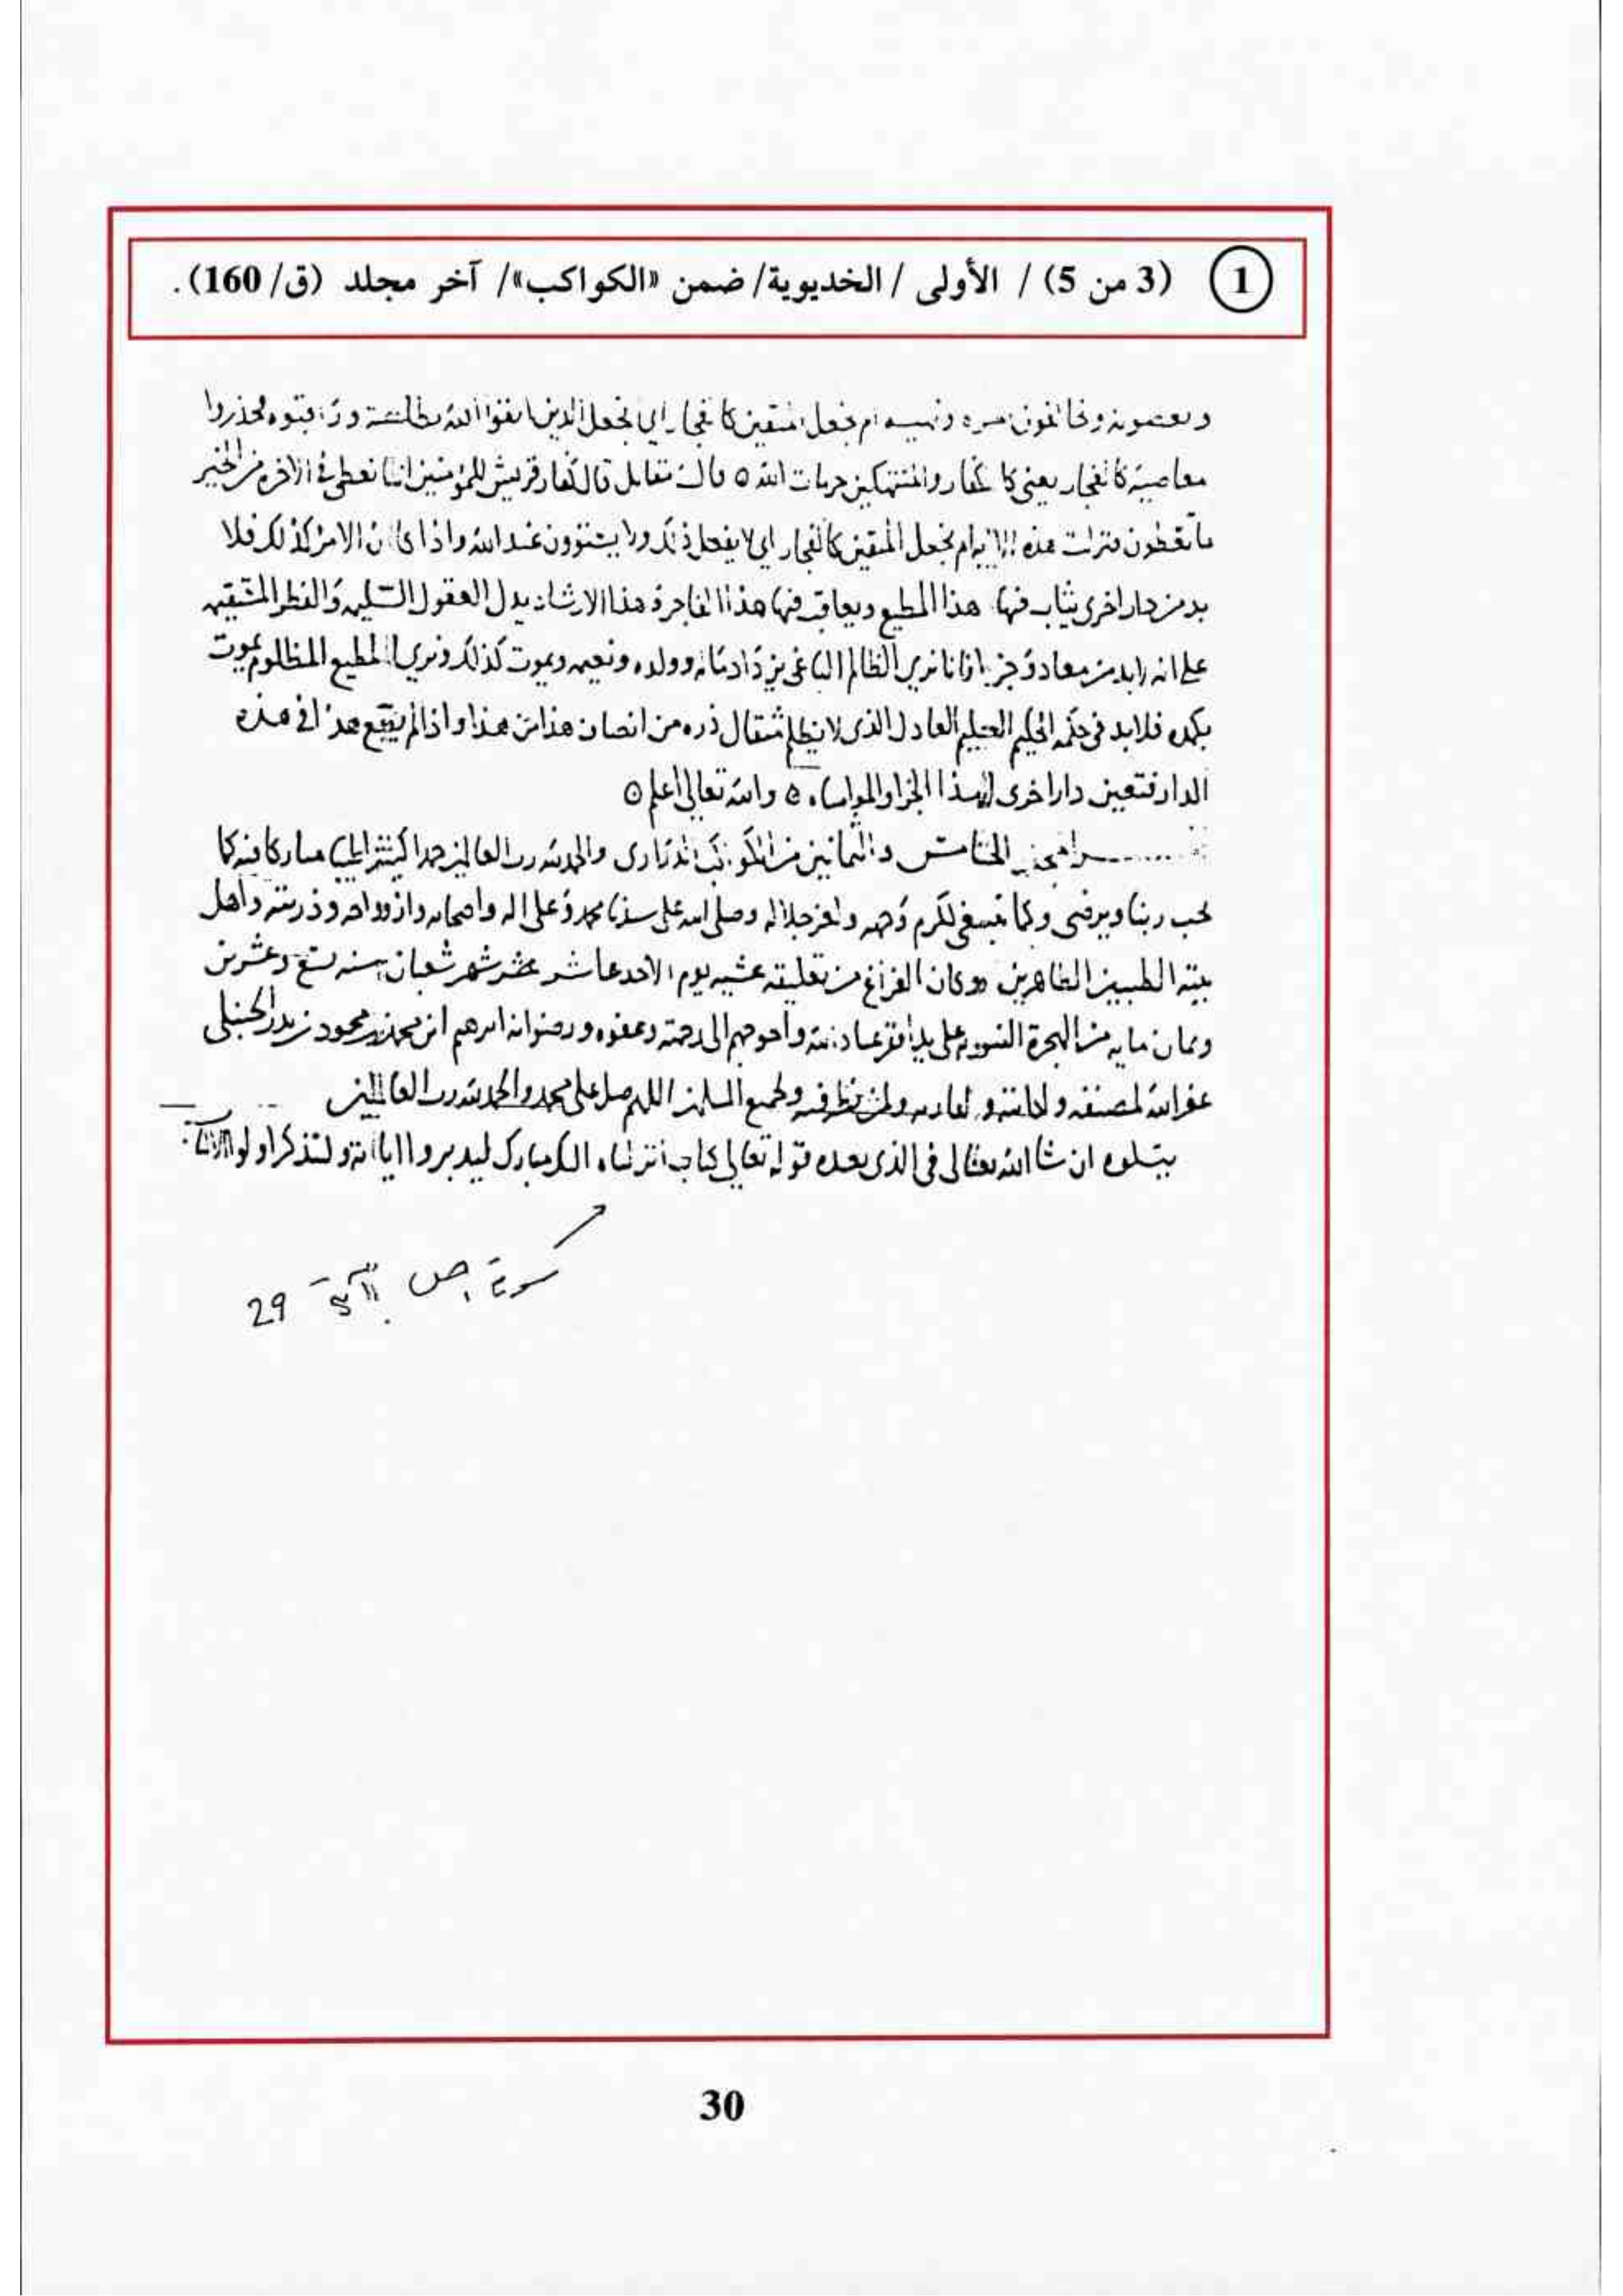 1 (3 من 5) / الأولى / الخديوية/ ضمن «الكواكب»/ آخر مجلد (ق/ 160).
ام نجعل المتقين كالفجار اي نجعل الذين اتقوا الله
معاصيه كالفجار يعني كالكفار والمنتهكين حرمات الله ٥ قال مقاتل قال كفار قريش للمؤمنين انا نعطى في الاخره من الخير
ما تعطون فنزلت هذه الايه ام نجعل المتقين كالفجار اي لا يفعل ذلك ولا يستوون عند الله واذا كان الامر كذلك فلا
بد من دار اخرى يثاب فيها هذا المطيع ويعاقب فيها هذا الفاجر وهذا الارشاد يدل العقول السليمه والفطر المستقيمه
على انه لابد من معاد وجزا فانا نري الظالم الباغي يزداد ماله وولده ونعيمه ويموت كذلك ونري المطيع المظلوم يموت
بكمده فلا بد في حكمه الحكيم العليم العادل الذي لا يظلم مثقال ذره من انصاف هذا من هذا واذا لم يقع هذا في هذه
الدار فتعين دارا اخرى لهذا الجزا والمواساه ٥ والله تعالى اعلم ٥
الخامس والثمانين من الكواكب الدراري والحمد لله رب العالمين حمدا كثيرا طيبا مباركا فيه كما
يحب ربنا ويرضى وكما ينبغي لكرم وجهه وعز جلاله وصلى الله على سيدنا محمد وعلى اله واصحابه وازواجه وذريته واهل
بيته الطيبين الطاهرين وكان الفراغ من تعليقه عشيه يوم الاحد عاشر شهر شعبان سنه تسع وعشرين
وثمان مايه من الهجرة النبويه على يد افقر عباد الله واحوجهم الى رحمته وعفوه ورضوانه ابرهيم ابن محمد بن محمود بن بدر الحنبلي
غفر الله لمصنفه ولكاتبه ولقاريه ولمن نظر فيه ولجميع المسلمين اللهم صل على محمد والحمد لله رب العالمين
يتلوه ان شا الله تعالى في الذي بعده قوله تعالى كتاب انزلناه اليك مبارك ليدبروا اياته وليتذكر اولو الالباب
سورة ص الآية 29
30